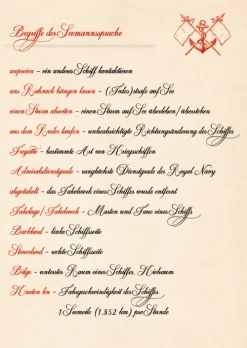 Begriffe der Seemannssprache
anpreien - ein anderes Schiff kontaktieren
am Rahnock hängen lassen - (Todes)strafe auf See
einen Sturm abreiten - einen Sturm auf See überleben/überstehen
aus dem Ruder laufen - unbeabsichtigte Richtungsänderung des Schiffes
Fregatte - bestimmte Art von Kriegsschiffen
Admiralsdienstgrade - ranghöchste Dienstgrade der Royal Navy
abgetakelt - das Takelwerk eines Schiffes wurde entfernt
Takelage/Takelwerk - Masten und Taue eines Schiffs
Backbord - linke Schiffsseite
Steuerbord - rechte Schiffsseite
Bilge - unterster Raum eines Schiffes, Kielraum
Knoten kn - Fahrgeschwindigkeit des Schiffes,
1 Seemeile (1.852 km) pro Stunde